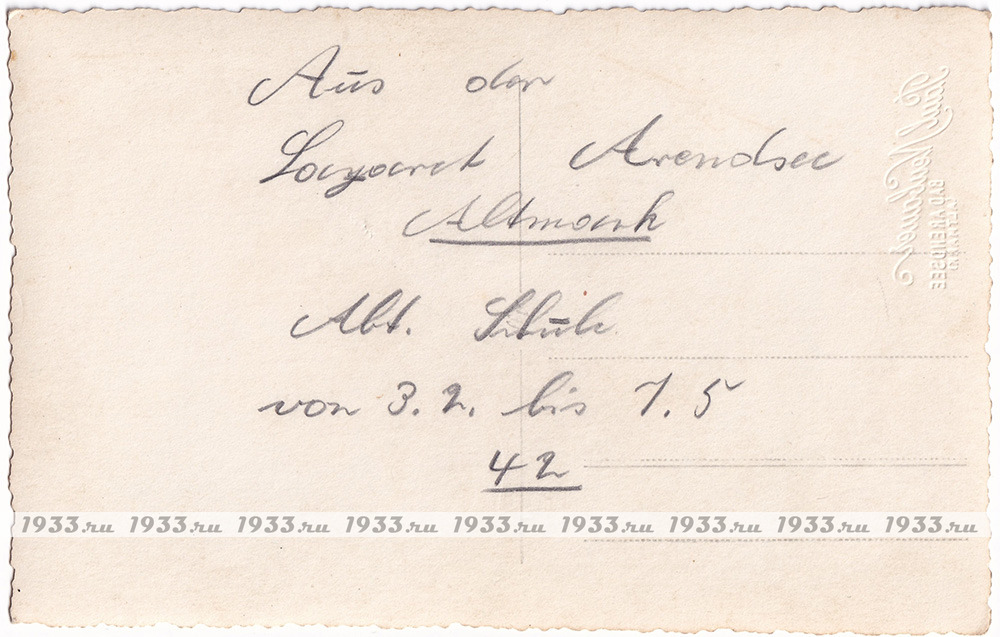 Aus der
Lazarett Arendsee
Altmark
Abt.
von 3. 2. bis 7. 5
42
BAD ARENDSEE
1933.ru 1933.ru 1933.ru 1933.ru 1933.ru 1933.ru 1933.ru 1933.ru 1933.ru